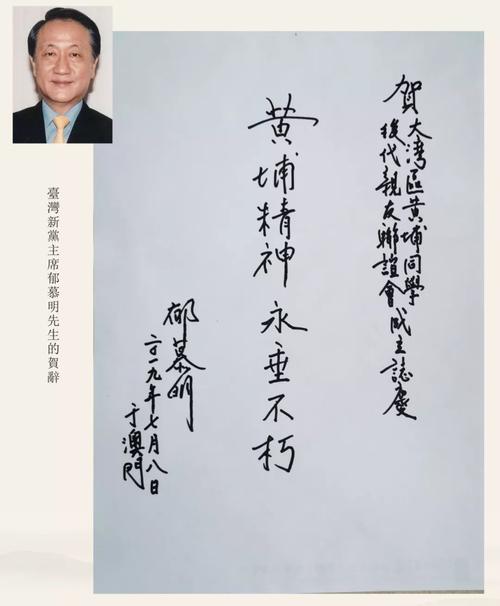 賀大湾區黄埔同學
後代親友聯誼會成立誌慶
黄埔精神永垂不朽
郁慕明
二〇一九年七月八日
于澳門
臺灣新黨主席郁慕明先生的賀辭